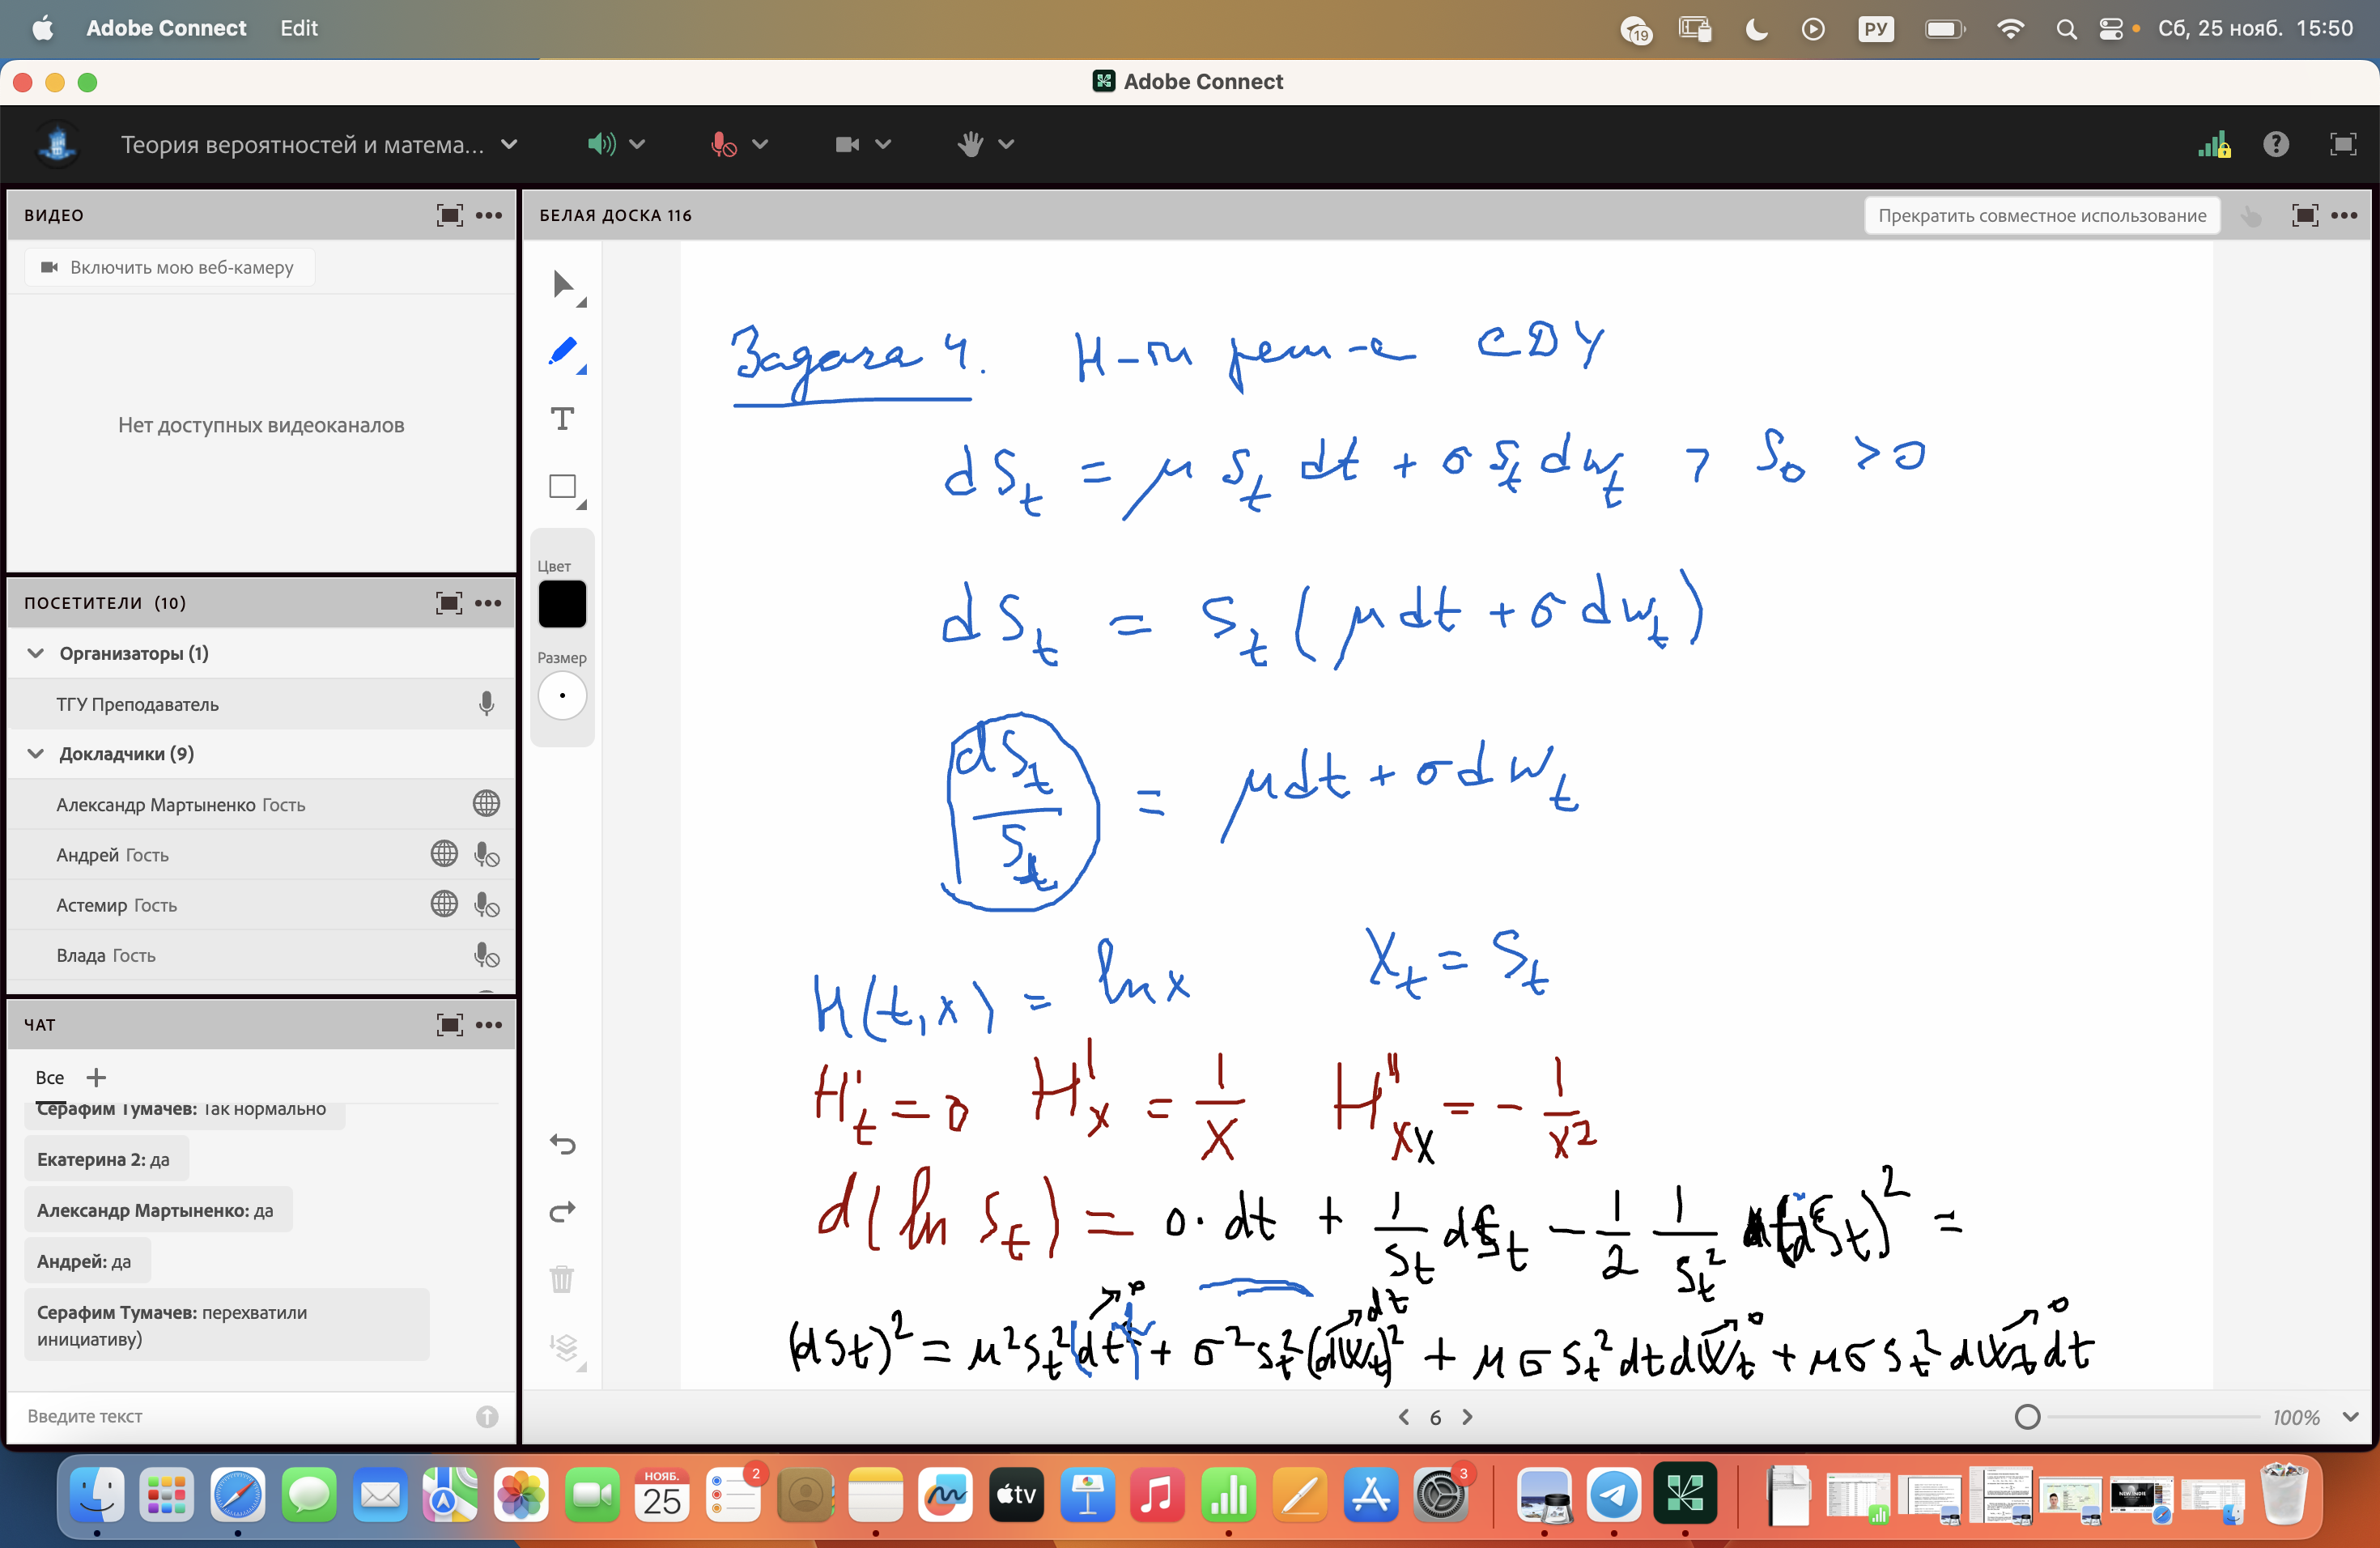 Adobe Connect Edit 19 РУ Сб, 25 нояб. 15:50
Adobe Connect
Теория вероятностей и матема...
ВИДЕО
Включить мою веб-камеру
Нет доступных видеоканалов
ПОСЕТИТЕЛИ (10)
Организаторы (1)
ТГУ Преподаватель
Докладчики (9)
Александр Мартыненко Гость
Андрей Гость
Астемир Гость
Влада Гость
ЧАТ
Все
Серафим Тумачев: Так нормально
Екатерина 2: да
Александр Мартыненко: да
Андрей: да
Серафим Тумачев: перехватили
инициативу)
Введите текст
БЕЛАЯ ДОСКА 116
Прекратить совместное использование
T
Цвет
Размер
Задача 4. Н-ти реш-е СДУ
dS_t = μ S_t dt + σ S_t dw_t, S_0 > 0
dS_t = S_t (μ dt + σ dw_t)
dS_t / S_t = μ dt + σ dw_t
H(t,x) = ln x X_t = S_t
H'_t = 0 H'_x = 1/x H''_xx = - 1/x²
d(ln S_t) = 0 · dt + 1/S_t dS_t - 1/2 1/S_t² (dS_t)² =
→ 0 → dt → 0 → 0
(dS_t)² = μ² S_t² (dt)² + σ² S_t² (dW_t)² + μ σ S_t² dt dW_t + μ σ S_t² dW_t dt
6
100%
НОЯБ.
25
2
tv
3